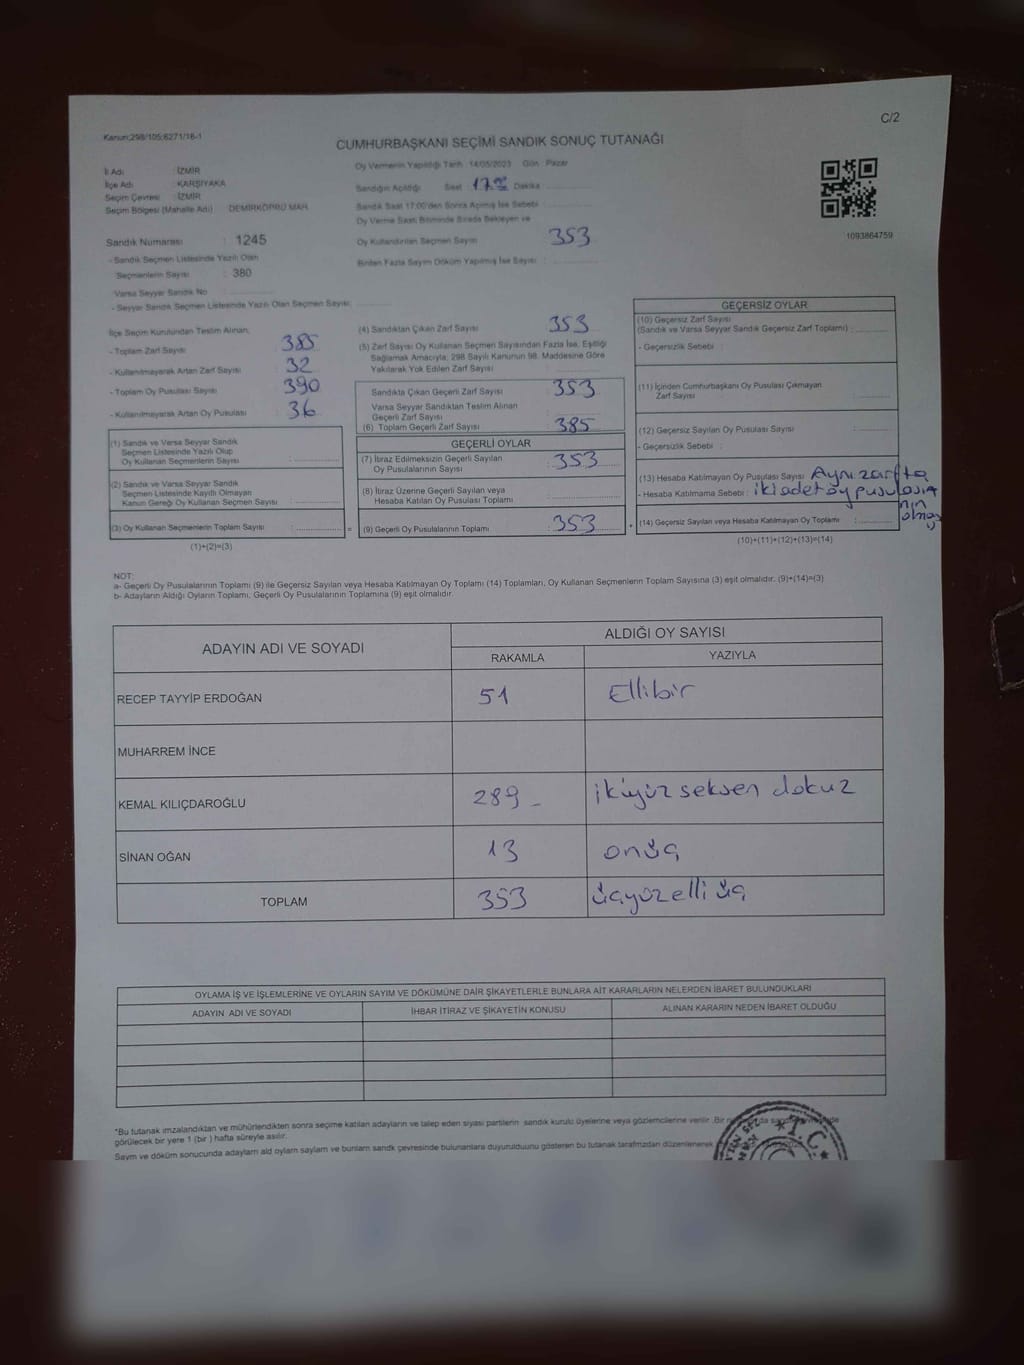 C/2
Kanun:298/105;6271/18-1
CUMHURBAŞKANI SEÇİMİ SANDIK SONUÇ TUTANAĞI
İl Adı : İZMİR
İlçe Adı : KARŞIYAKA
Seçim Çevresi : İZMİR
Seçim Bölgesi (Mahalle Adı) : DEMİRKÖPRÜ MAH.
Sandık Numarası : 1245
- Sandık Seçmen Listesinde Yazılı Olan
Seçmenlerin Sayısı : 380
Varsa Seyyar Sandık No :
- Seyyar Sandık Seçmen Listesinde Yazılı Olan Seçmen Sayısı:
Oy Vermenin Yapıldığı Tarih : 14/05/2023 Gün : Pazar
Sandığın Açıldığı Saat : 17.00 Dakika
Sandık Saat 17:00'den Sonra Açılmış İse Sebebi :
Oy Verme Saati Bitiminde Sırada Bekleyen ve
Oy Kullandırılan Seçmen Sayısı : 353
Birden Fazla Sayım Döküm Yapılmış İse Sayısı :
1093864759
İlçe Seçim Kurulundan Teslim Alınan;
- Toplam Zarf Sayısı : 385
- Kullanılmayarak Artan Zarf Sayısı : 32
- Toplam Oy Pusulası Sayısı : 390
- Kullanılmayarak Artan Oy Pusulası : 36
(1) Sandık ve Varsa Seyyar Sandık
Seçmen Listesinde Yazılı Olup
Oy Kullanan Seçmenlerin Sayısı :
(2) Sandık ve Varsa Seyyar Sandık
Seçmen Listesinde Kayıtlı Olmayan
Kanun Gereği Oy Kullanan Seçmen Sayısı :
(3) Oy Kullanan Seçmenlerin Toplam Sayısı : =
(1)+(2)=(3)
(4) Sandıktan Çıkan Zarf Sayısı : 353
(5) Zarf Sayısı Oy Kullanan Seçmen Sayısından Fazla İse, Eşitliği
Sağlamak Amacıyla; 298 Sayılı Kanunun 98. Maddesine Göre
Yakılarak Yok Edilen Zarf Sayısı :
Sandıkta Çıkan Geçerli Zarf Sayısı : 353
Varsa Seyyar Sandıktan Teslim Alınan
Geçerli Zarf Sayısı :
(6) Toplam Geçerli Zarf Sayısı : 385
GEÇERLİ OYLAR
(7) İtiraz Edilmeksizin Geçerli Sayılan
Oy Pusulalarının Sayısı : 353
(8) İtiraz Üzerine Geçerli Sayılan veya
Hesaba Katılan Oy Pusulası Toplamı :
(9) Geçerli Oy Pusulalarının Toplamı : 353 +
GEÇERSİZ OYLAR
(10) Geçersiz Zarf Sayısı
(Sandık ve Varsa Seyyar Sandık Geçersiz Zarf Toplamı) :
- Geçersizlik Sebebi :
(11) İçinden Cumhurbaşkanı Oy Pusulası Çıkmayan
Zarf Sayısı :
(12) Geçersiz Sayılan Oy Pusulası Sayısı :
- Geçersizlik Sebebi :
(13) Hesaba Katılmayan Oy Pusulası Sayısı : Aynı zarfta
- Hesaba Katılmama Sebebi : iki adet oy pusulası
nın
olması
(14) Geçersiz Sayılan veya Hesaba Katılmayan Oy Toplamı :
(10)+(11)+(12)+(13)=(14)
NOT:
a- Geçerli Oy Pusulalarının Toplamı (9) ile Geçersiz Sayılan veya Hesaba Katılmayan Oy Toplamı (14) Toplamları, Oy Kullanan Seçmenlerin Toplam Sayısına (3) eşit olmalıdır. (9)+(14)=(3)
b- Adayların Aldığı Oyların Toplamı, Geçerli Oy Pusulalarının Toplamına (9) eşit olmalıdır.
ADAYIN ADI VE SOYADI ALDIĞI OY SAYISI
RAKAMLA YAZIYLA
RECEP TAYYİP ERDOĞAN 51 Ellibir
MUHARREM İNCE
KEMAL KILIÇDAROĞLU 289 - ikiyüz seksen dokuz
SİNAN OĞAN 13 onüç
TOPLAM 353 üçyüzelli üç
OYLAMA İŞ VE İŞLEMLERİNE VE OYLARIN SAYIM VE DÖKÜMÜNE DAİR ŞİKAYETLERLE BUNLARA AİT KARARLARIN NELERDEN İBARET BULUNDUKLARI
ADAYIN ADI VE SOYADI İHBAR İTİRAZ VE ŞİKAYETİN KONUSU ALINAN KARARIN NEDEN İBARET OLDUĞU
*Bu tutanak imzalandıktan ve mühürlendikten sonra seçime katılan adayların ve talep eden siyasi partilerin sandık kurulu üyelerine veya gözlemcilerine verilir. Bir
görülecek bir yere 1 (bir) hafta süreyle asılır.
Sayım ve döküm sonucunda adayların aldı oyların sayıları ve bunların sandık çevresinde bulunanlara duyurulduunu gösteren bu tutanak tarafımızdan düzenlenerek
T.C.